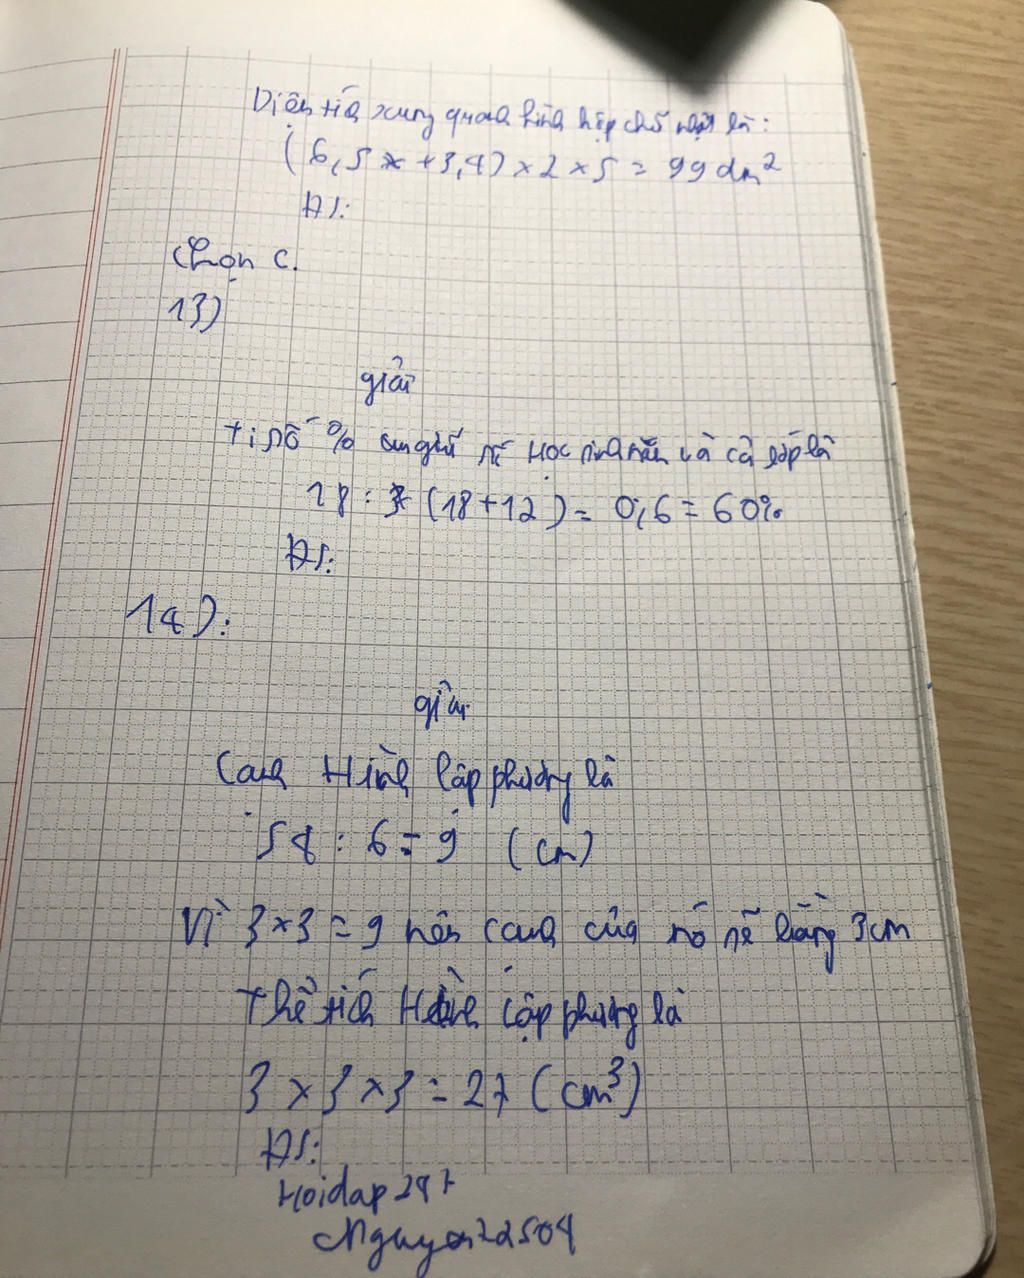 Diện tích xung quanh hình hộp chữ nhật là:
(6,5 + 3,4) × 2 × 5 = 99 dm²
ĐS:
Chọn C.
13)
giải
tỉ số % giữa số Học sinh và cả lớp là
18 : (18+12) = 0,6 = 60%
ĐS:
14):
giải
Cạnh Hình lập phương là
54 : 6 = 9 (cm)
Vì 3×3 = 9 nên cạnh của nó sẽ bằng 3cm
thể tích Hình lập phương là
3 × 3 × 3 = 27 (cm³)
ĐS:
Hoidap247
Nguyen22504